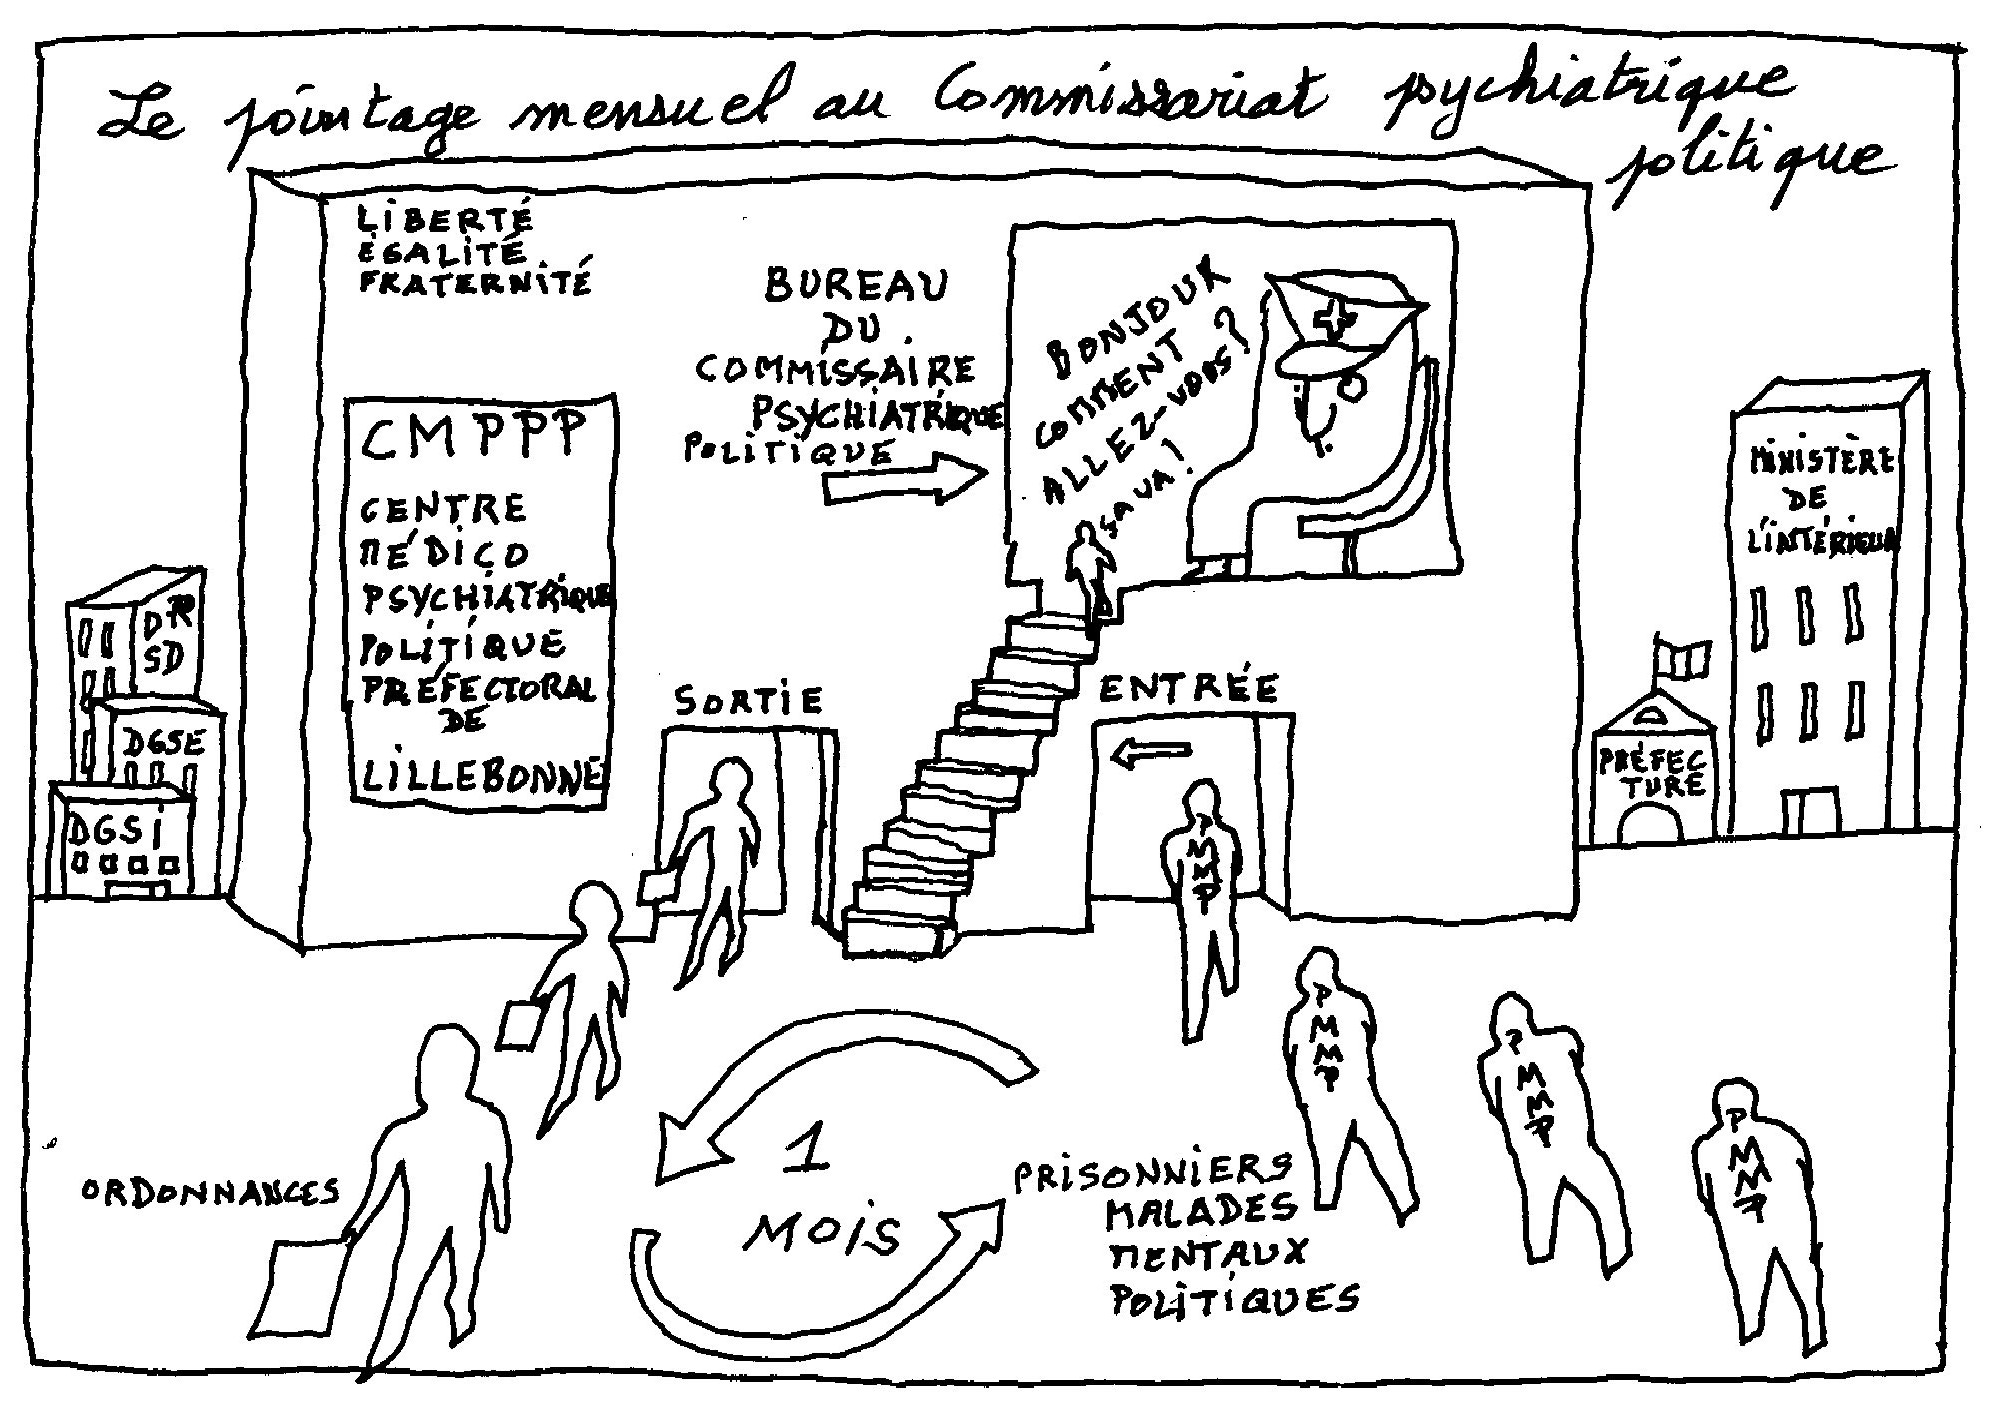 Le pointage mensuel au Commissariat psychiatrique
politique
LIBERTÉ
EGALITÉ
FRATERNITÉ
BUREAU
DU
COMMISSAIRE
PSYCHIATRIQUE
POLITIQUE
BONJOUR
COMMENT
ALLEZ-VOUS?
ÇA VA!
CMPPP
CENTRE
MÉDICO
PSYCHIATRIQUE
POLITIQUE
PREFECTORAL
DE
LILLEBONNE
MINISTÈRE
DE
L'INTÉRIEUR
DR
SD
DGSE
DGSI
SORTIE
ENTRÉE
PRÉFEC
TURE
P
M
M
P
P
M
M
P
P
M
M
P
P
M
M
P
1
MOIS
ORDONNANCES
PRISONNIERS
MALADES
MENTAUX
POLITIQUES